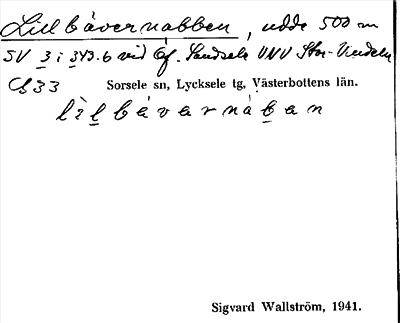 Lill bävernabben, udde 500 m
SV 3 i 343.6 vid Gf. Sandsele VNV Stor-Vindeln
C633
Sorsele sn, Lycksele tg, Västerbottens län.
lìlbávarnàban
Sigvard Wallström, 1941.